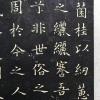 菌桂以紉蕙
之纚纚謇吾
兮非世俗之
周於今之人